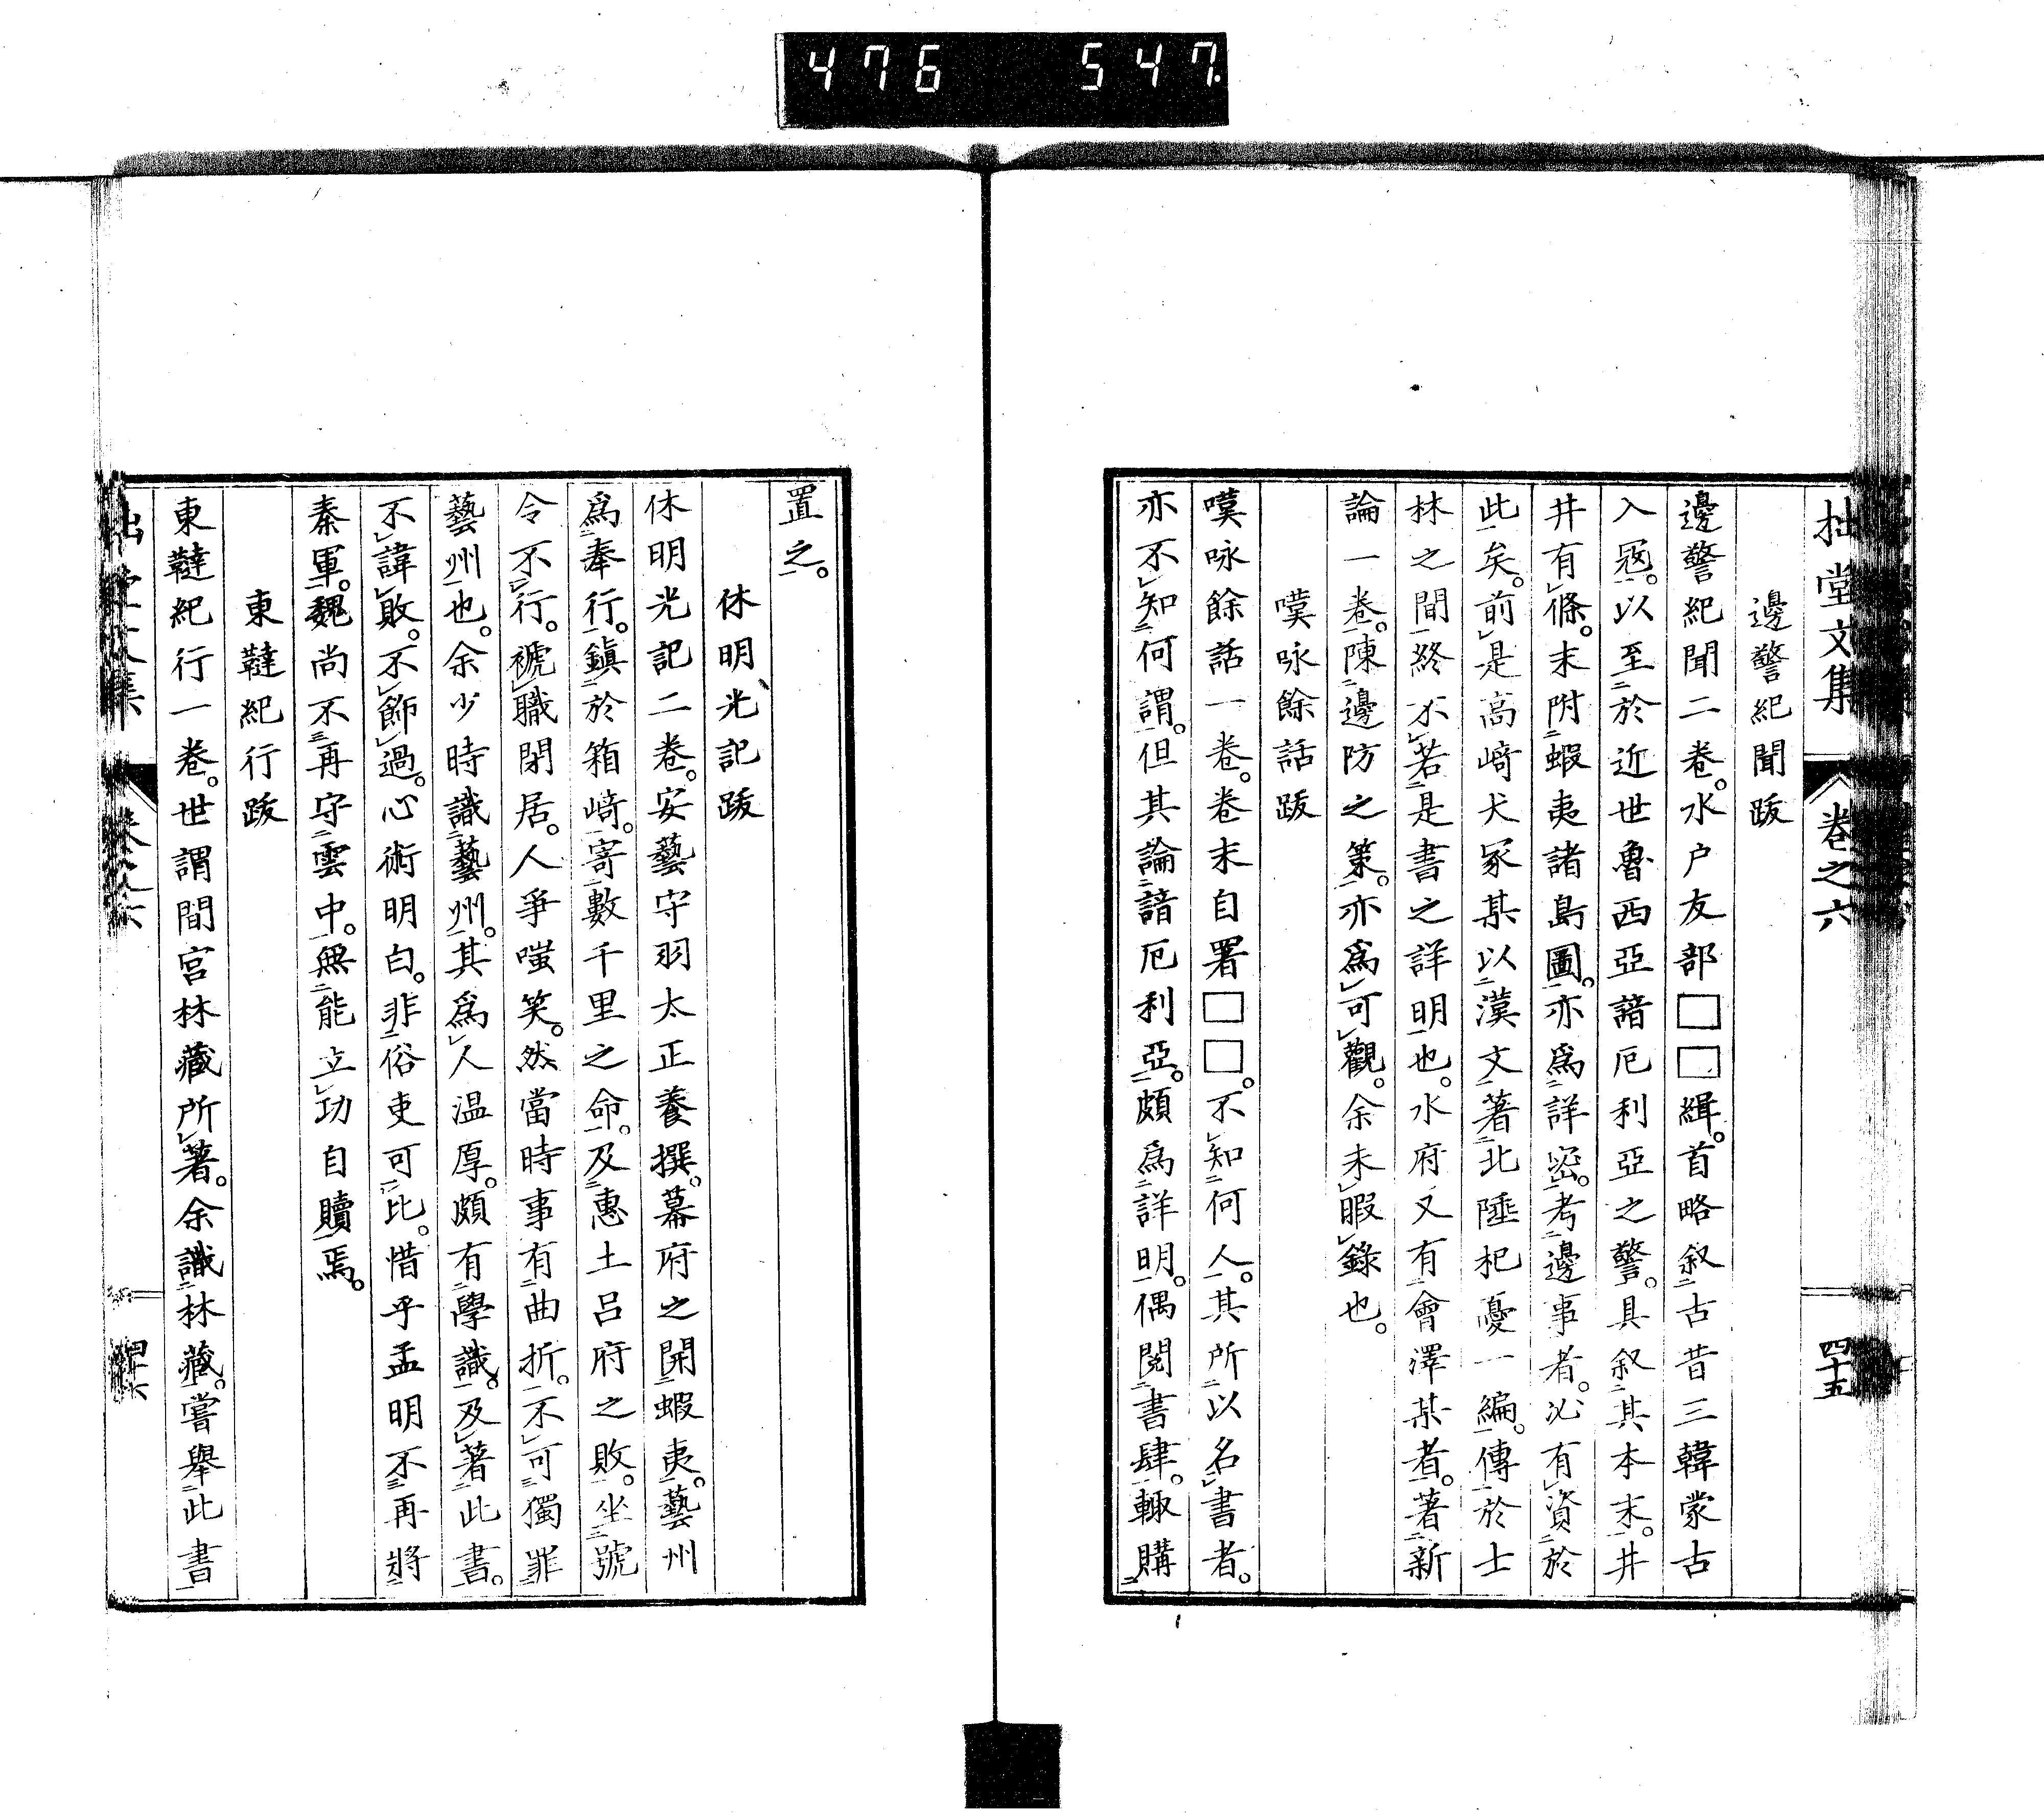 476 547
拙堂文集 卷之六 四十五
邊警紀聞跋
邊警紀聞二卷。水戶友部□□緝。首略叙古昔三韓蒙古
入寇。以至於近世魯西亞諳厄利亞之警。具叙其本末。井
井有條。末附蝦夷諸島圖。亦爲詳密。考邊事者。必有資於
此矣。前是高﨑犬冢某以漢文著北陲杞憂一編。傳於士
林之間。終不若是書之詳明也。水府又有會澤某者。著新
論一卷。陳邊防之策。亦爲可觀。余未暇錄也。
嘆咏餘話跋
嘆咏餘話一卷。卷末自署□□。不知何人。其所以名書者。
亦不知何謂。但其論諳厄利亞。頗爲詳明。偶閱書肆。輙購
置之。
休明光記跋
休明光記二卷。安藝守羽太正養撰。幕府之開蝦夷。藝州
爲奉行。鎭於箱﨑。寄數千里之命。及惠土呂府之敗。坐號
令不行。褫職閑居。人爭嗤笑。然當時事有曲折。不可獨罪
藝州也。余少時識藝州。其爲人温厚。頗有學識。及著此書。
不諱敗。不飾過。心術明白。非俗吏可比。惜乎孟明不再將
秦軍。魏尚不再守雲中。無能立功自贖焉。
東韃紀行跋
東韃紀行一卷。世謂間宮林藏所著。余識林藏。嘗舉此書